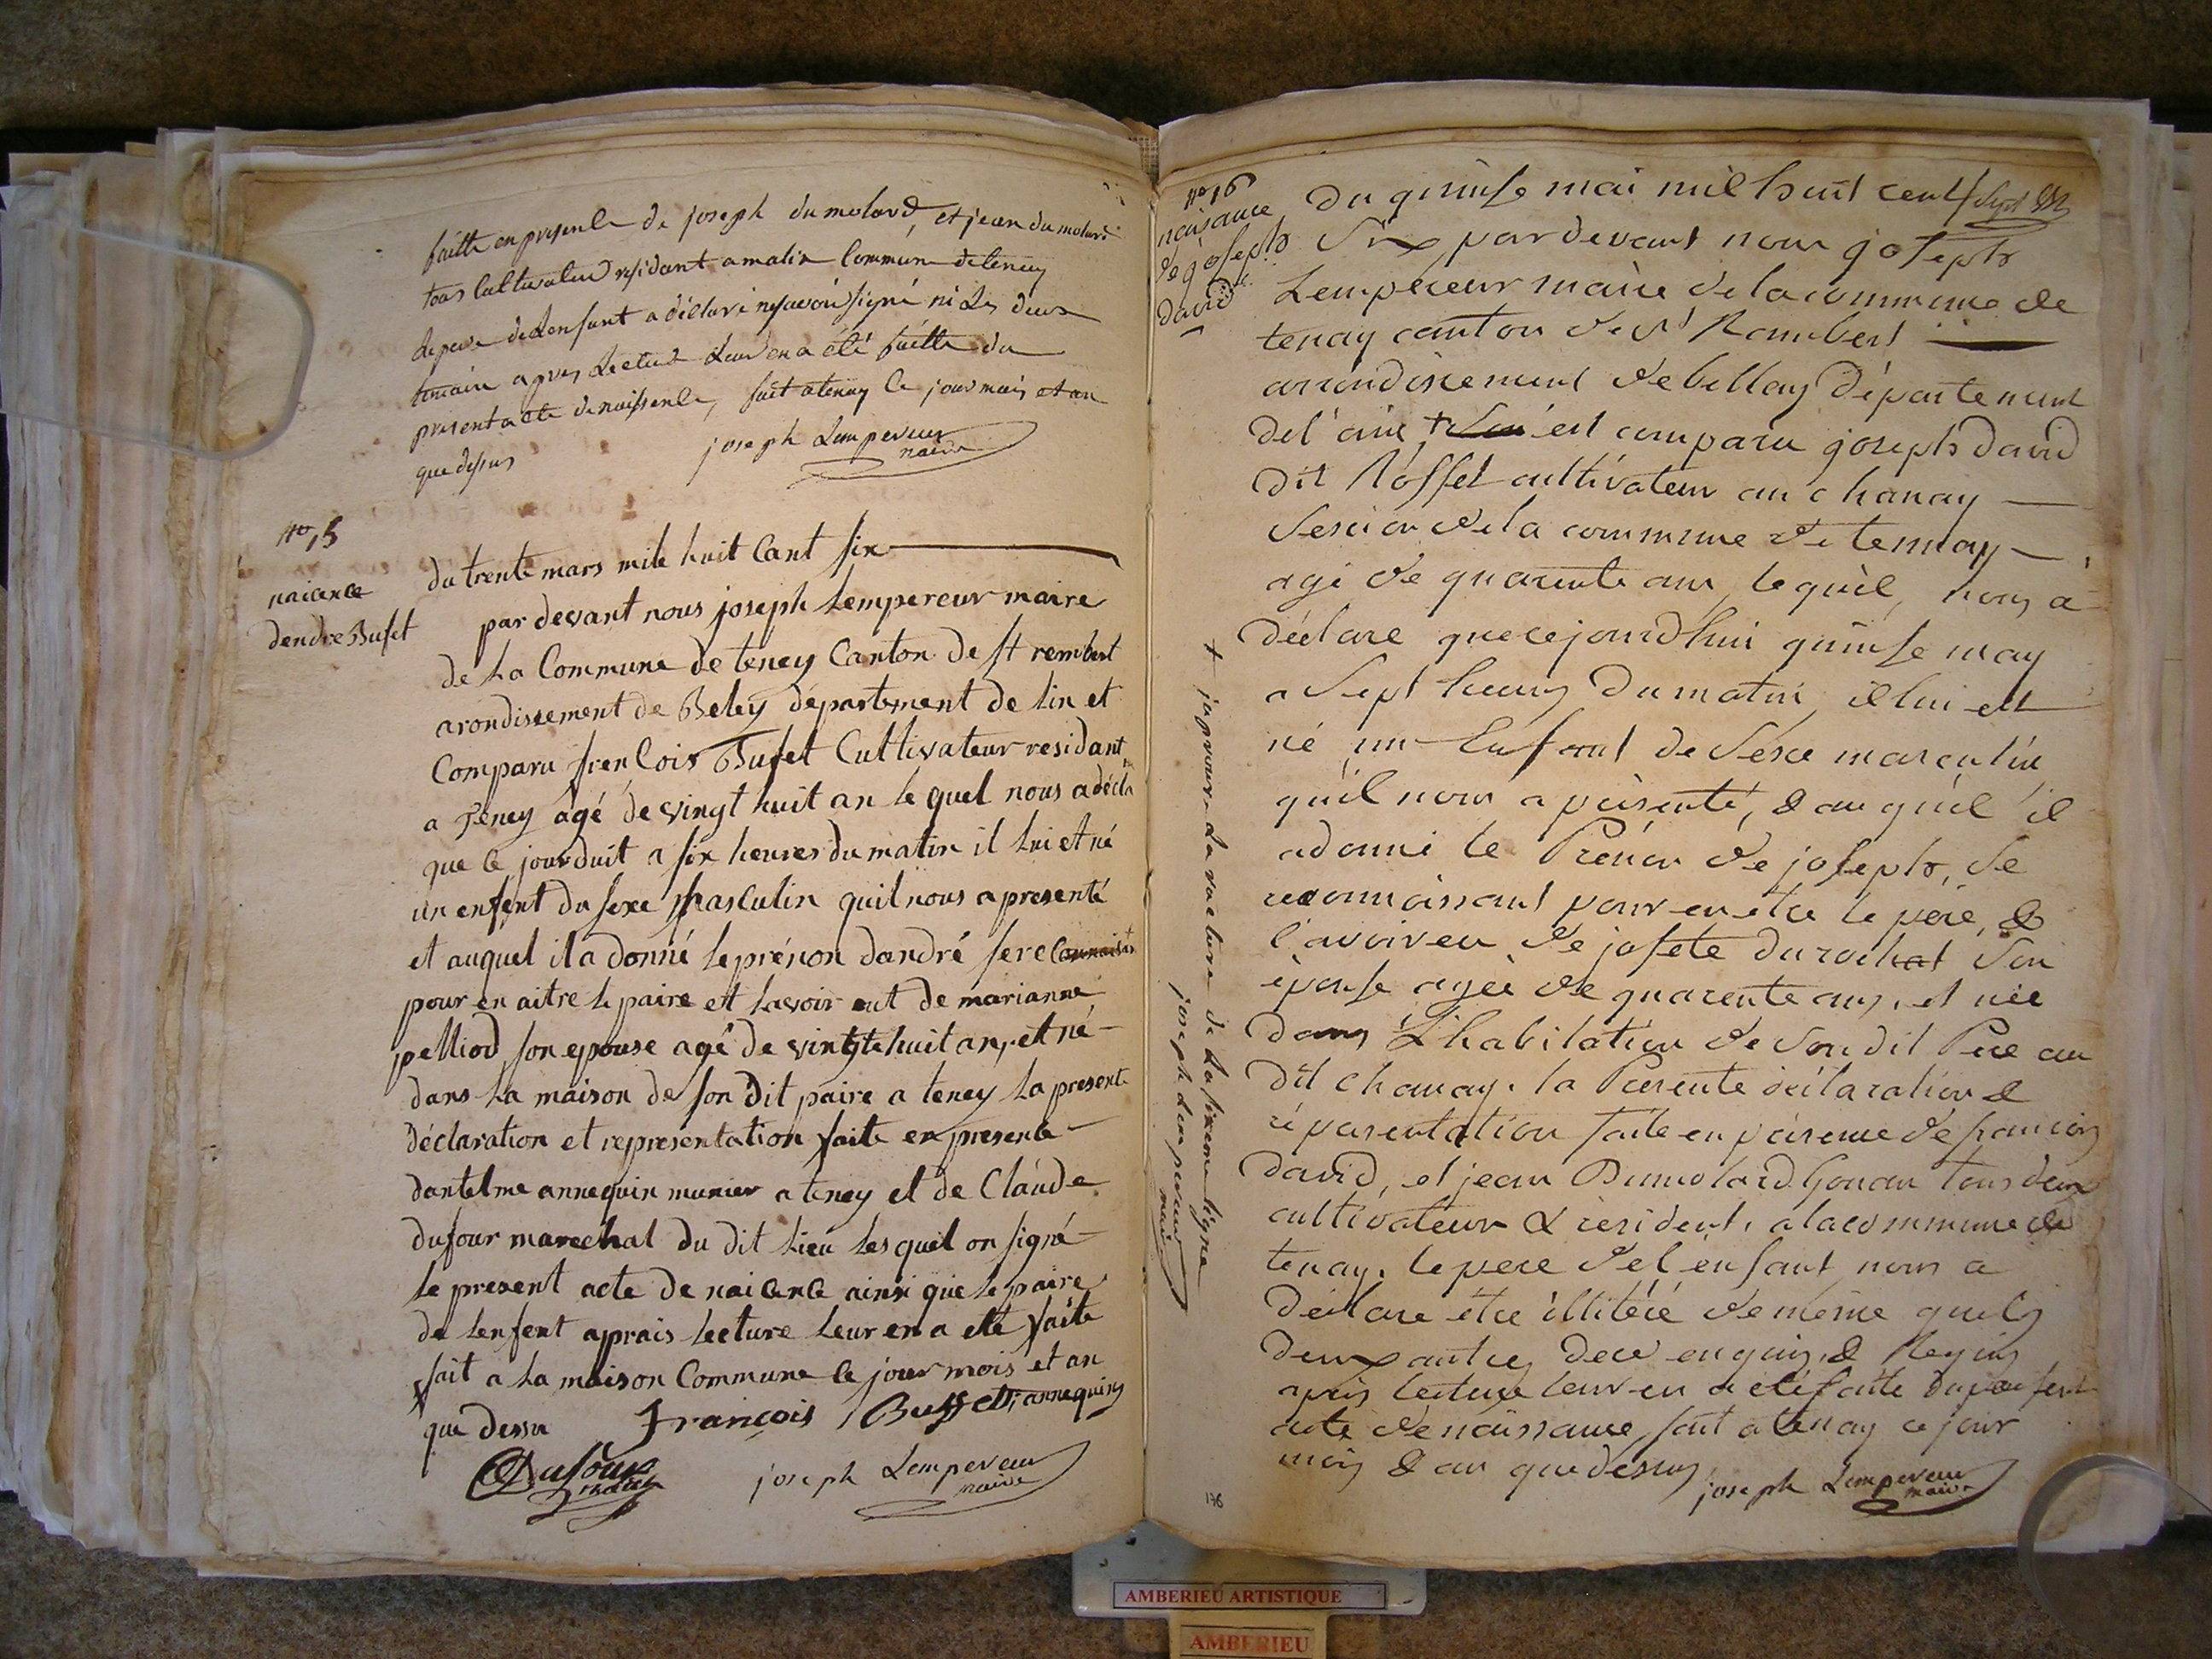 faitte en presence de joseph dumolard, et jean dumolard
tous cultivateur residant a malix commune de teney
le pere de lenfant a déclaré ne scavoir signé ni les deux
temoin apres lecture leur en a été faitte du
present acte de naissence, fait a teney le jour mois et an
que dessus joseph Lempereur
maire
no 15
naicence
dendre Bufet
du trente mars mile huit Cant six
par devant nous joseph Lempereur maire
de La Commune de teney Canton de st rembert
arondissement de Beley département de lin et
Comparu frencois Bufet Cultivateur residant
a Teney agé de vingt huit an le quel nous a décla
que ce jourduit a six heures du matin il lui et né
un enfent du sexe masculin quil nous a presenté
et auquel il a donné le prénon dandré se reconnaisan
pour en aitre le paire et lavoir eut de marianne
pelliod son epouse agé de vingte huit an, et né
dans La maison de son dit paire a teney La presente
déclaration et representation faite en presence
dantelme annequin munier a teney et de Claude
dufour marechal du dit Lieu Lesquel on signé
le present acte de naicence ainsi que le paire
de lenfent aprais Lecture Leur en a eté faite
fait a La maison Commune le jour mois et an
que dessu François Buffet annequin
C Dufour
joseph Lempereur
maire
no 16
naisance
de joseph
david
du quinse mai mil huit cent
Six par devant nous joseph
Lempereur maire de la commune de
tenay canton de st Rambert
arrondissement de bellay département
de l'ain + est comparu joseph david
dit Rosset cultivateur au chanay
Session de la commune de tennay
agé de quarente ans, lequel, nous a
déclare que cejourdhui quinse may
a Sept heures du matin, il lui est
né un Enfant de Sexe masculin
qu'il nous a présenté, & au quel il
a donné le Prénon de joseph, Se
reconnoissant pour en etre le pere, &
l'avoir eu de josete durochat Son
épouse agée de quarente ans, et née
dans L'habitation de Son dit Pere au
dit chanay. la Presente déclaration &
représentation faite en présence de francois
david, et jean Dumolard Gonan tous deux
cultivateur & resident, a la commune de
tenay. le pere de l'enfant nous a
déclare etre illitéré de même que les
deux autres de ce enquis, & Requis
apres lecture leur en a été faite du présent
acte de naissance, fait a tenay ce jour
mois & an que dessus,
joseph Lempereur
maire
+ japrouve La rature de La sixieme ligne
joseph Lempereur
maire
176
AMBERIEU ARTISTIQUE
AMBERIEU